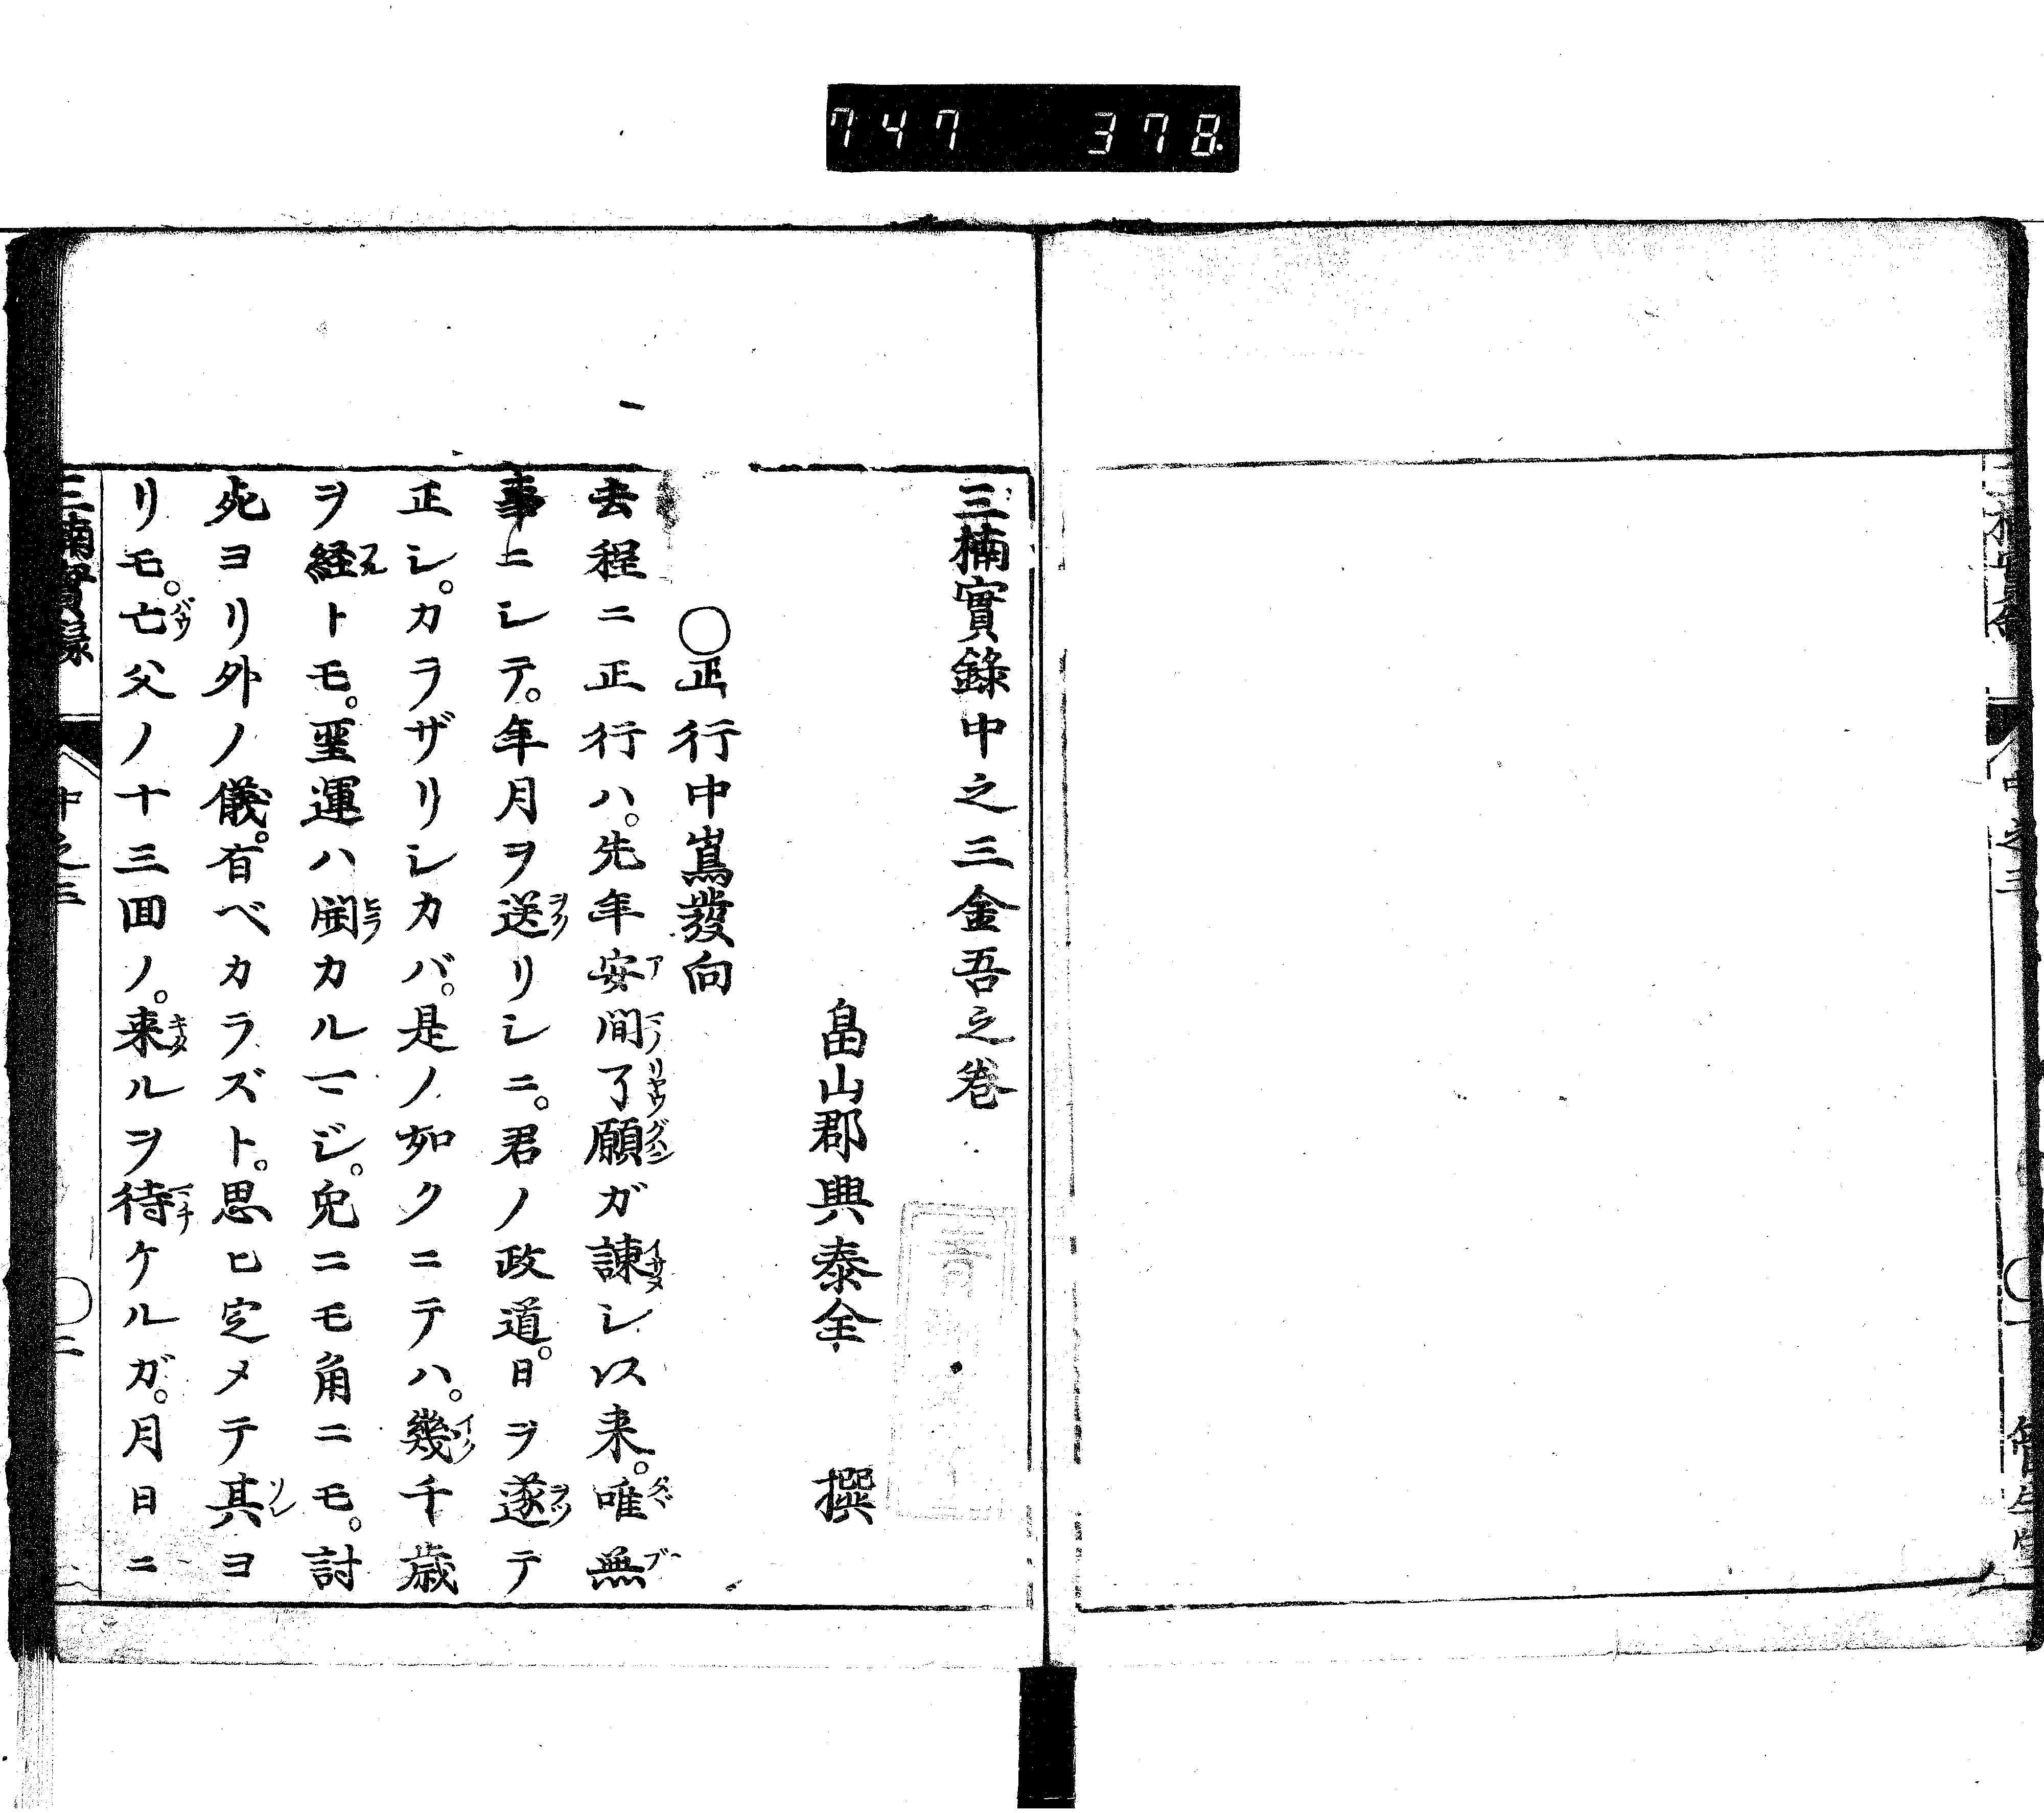 747 378
三楠實錄中之三金吾之卷
畠山郡興泰全 撰
○正行中嶌發向
去程ニ正行ハ。先年安間了願ガ諫シ以来。唯無
事ニシテ。年月ヲ送リシニ。君ノ政道。日ヲ遂テ
正シ。カラザリシカバ。是ノ如クニテハ。幾千歳
ヲ経トモ。聖運ハ開カルマジ。免ニモ角ニモ。討
死ヨリ外ノ儀。有ベカラズト。思ヒ定メテ其ヨ
リモ。亡父ノ十三回ノ。来ルヲ待ケルガ。月日ニ
三楠實録 中之三 ○二